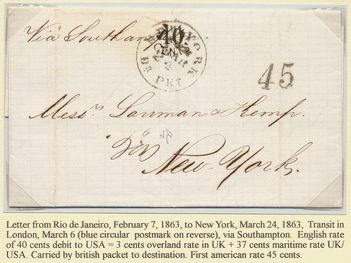 Via Southampton
40
NEW YORK
CENTS
BR. PKT
45
Messrs. Lanman & Kemp.
New-York.
Letter from Rio de Janeiro, February 7, 1863, to New York, March 24, 1863, Transit in
London, March 6 (blue circular postmark on reverse), via Southampton. English rate
of 40 cents debit to USA = 3 cents overland rate in UK + 37 cents maritime rate UK/
USA. Carried by british packet to destination. First american rate 45 cents.